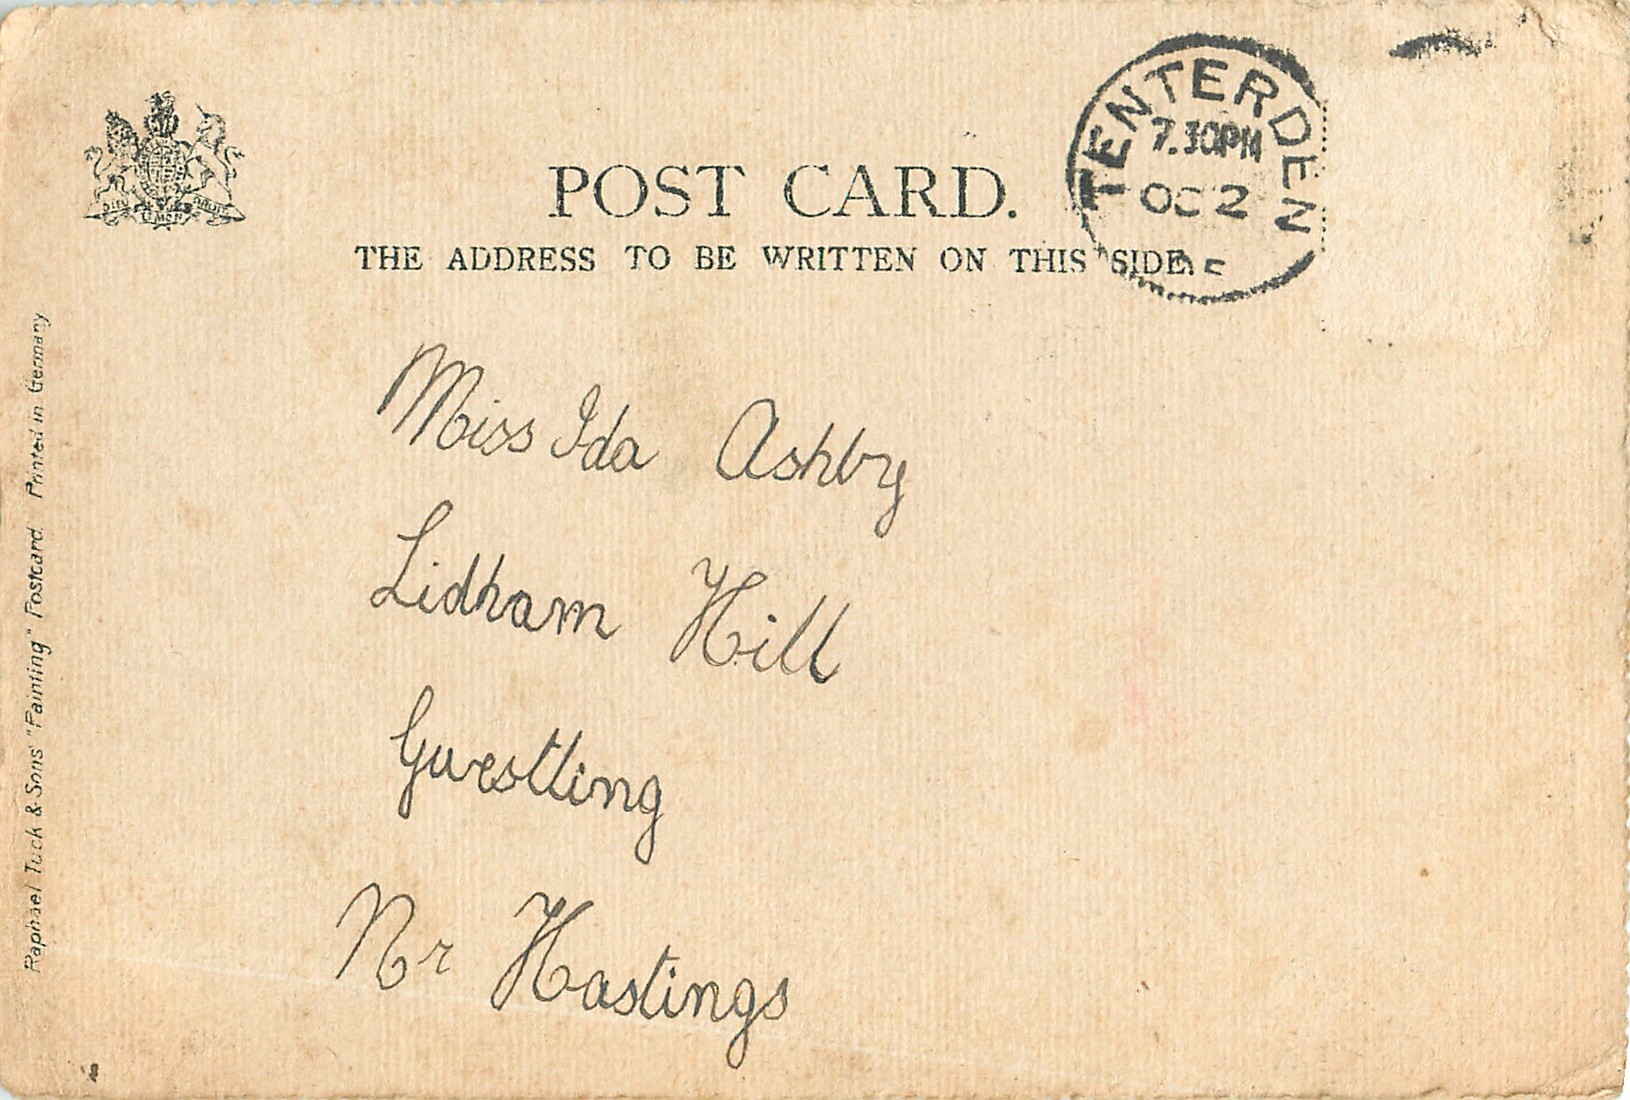 TENTERDEN
7.30PM
OC 2
POST CARD.
THE ADDRESS TO BE WRITTEN ON THIS SIDE.
Miss Ida Ashby
Lidham Hill
Guestling
Nr Hastings
Raphael Tuck & Sons' "Painting" Postcard. Printed in Germany